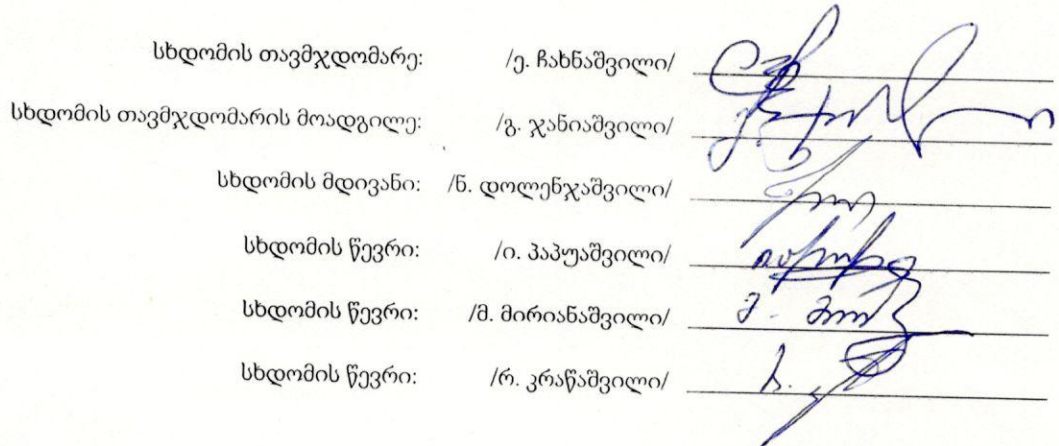 სხდომის თავმჯდომარე: /ე. ჩახნაშვილი/
სხდომის თავმჯდომარის მოადგილე: /გ. ჯანიაშვილი/
სხდომის მდივანი: /ნ. დოლენჯაშვილი/
სხდომის წევრი: /ი. პაპუაშვილი/
სხდომის წევრი: /მ. მირიანაშვილი/
სხდომის წევრი: /რ. კრაწაშვილი/